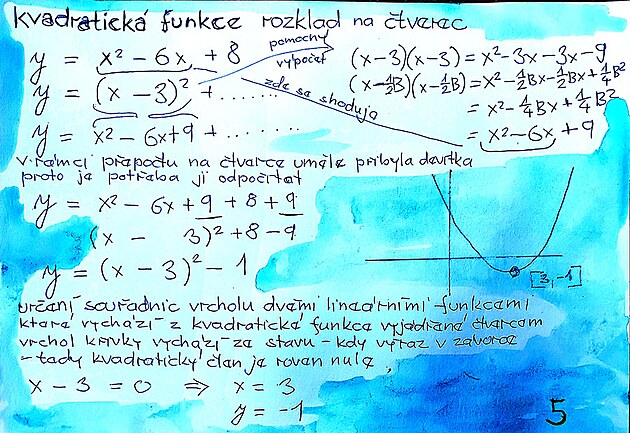 kvadratická funkce rozklad na čtverec
y = x² - 6x + 8
y = (x - 3)² + .......
y = x² - 6x+9 + ........
pomocný
výpočet
zde se shodují
(x-3)(x-3) = x²-3x-3x-9
(x-½B)(x-½B) = x²-½Bx-½Bx+¼B²
= x²-¼Bx+¼B²
= x²-6x+9
v rámci přepočtu na čtverce uměle přibyla devítka
proto je potřeba ji odpočítat
y = x² - 6x+9 + 8 + 9
(x - 3)² + 8 - 9
y = (x - 3)² - 1
[3,-1]
určení souřadnic vrcholu dvěmi lineárními funkcemi
která vychází z kvadratické funkce vyjádřené čtvercem
vrchol křivky vychází ze stavu - kdy výraz v závorce
- tedy kvadratický člen je roven nule,
x - 3 = 0 ⇒ x = 3
y = -1
5